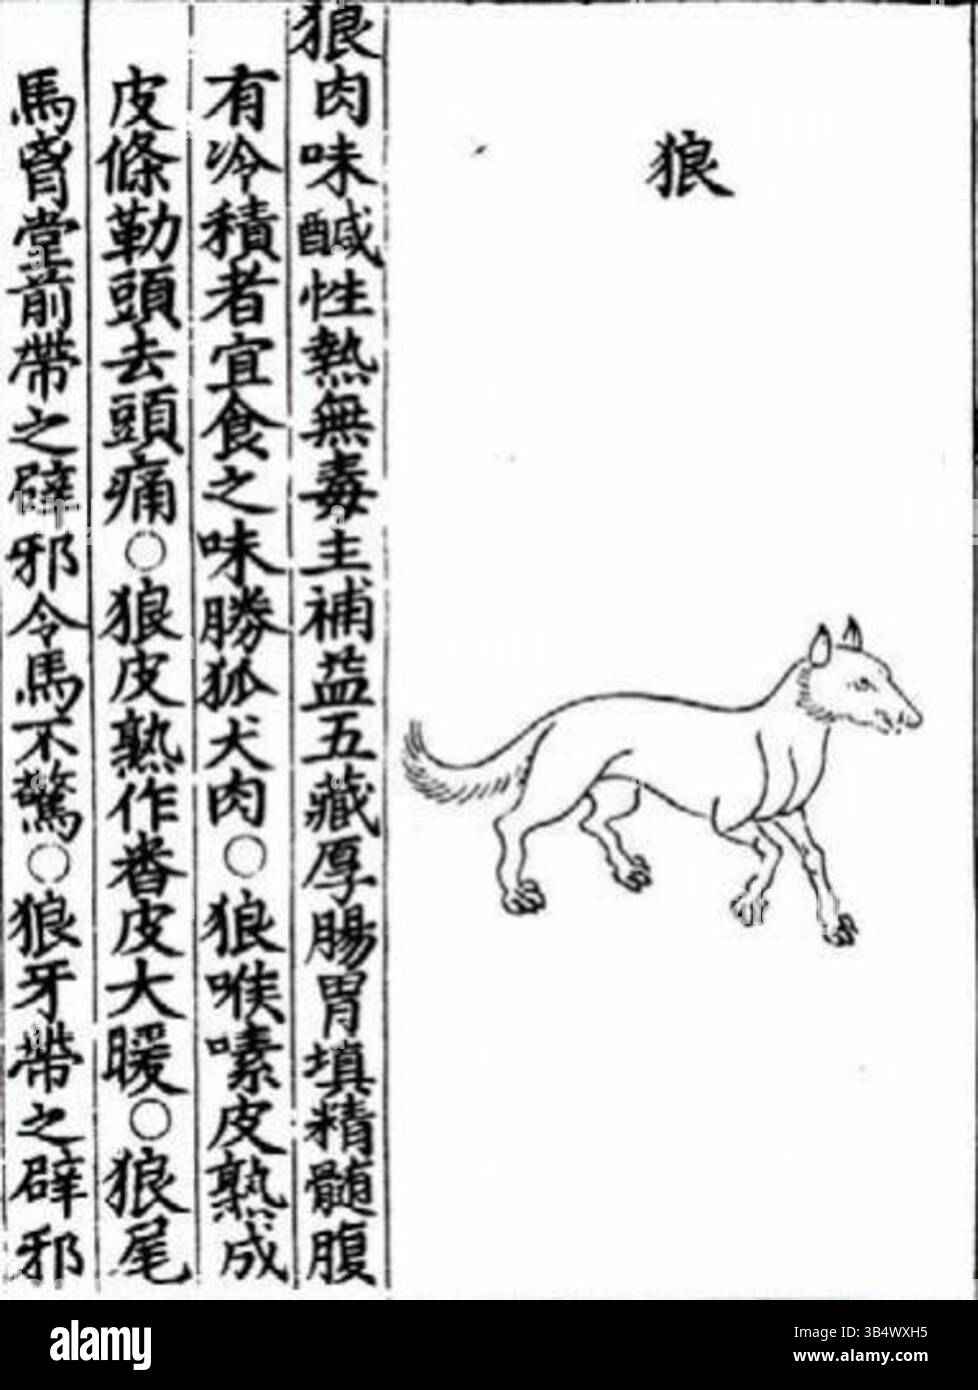 狼
狼肉味鹹性熱無毒主補益五藏厚腸胃填精髓腹
有冷積者宜食之味勝狐犬肉○狼喉嗉皮熟成
皮條勒頭去頭痛○狼皮熟作番皮大暖○狼尾
馬胷堂前帶之辟邪令馬不驚○狼牙帶之辟邪
alamy
Image ID: 3B4WXH5
www.alamy.com